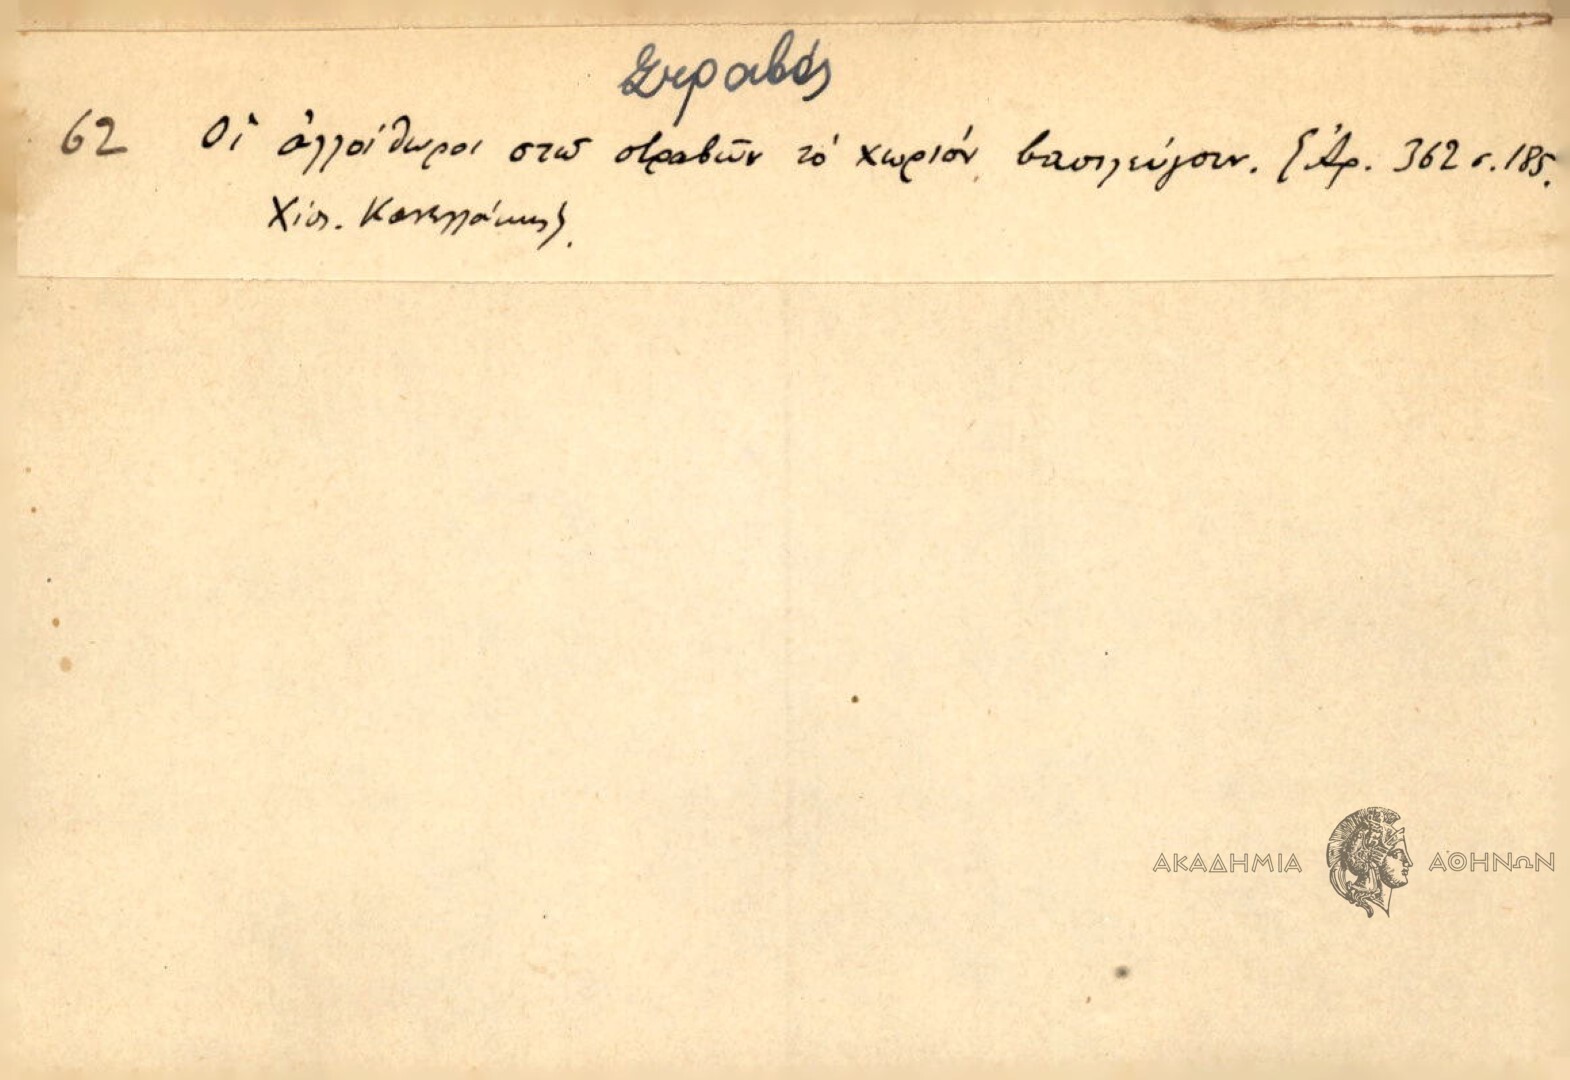 Στραβός
62 Οἱ ἀλλοίθωροι στῶ στραβῶν τὸ χωριόν βασιλεύγουν. {Ἀρ. 362 σ. 185.
Χίος. Κανελλάκης}.
ΑΚΑΔΗΜΙΑ ΑΘΗΝΩΝ